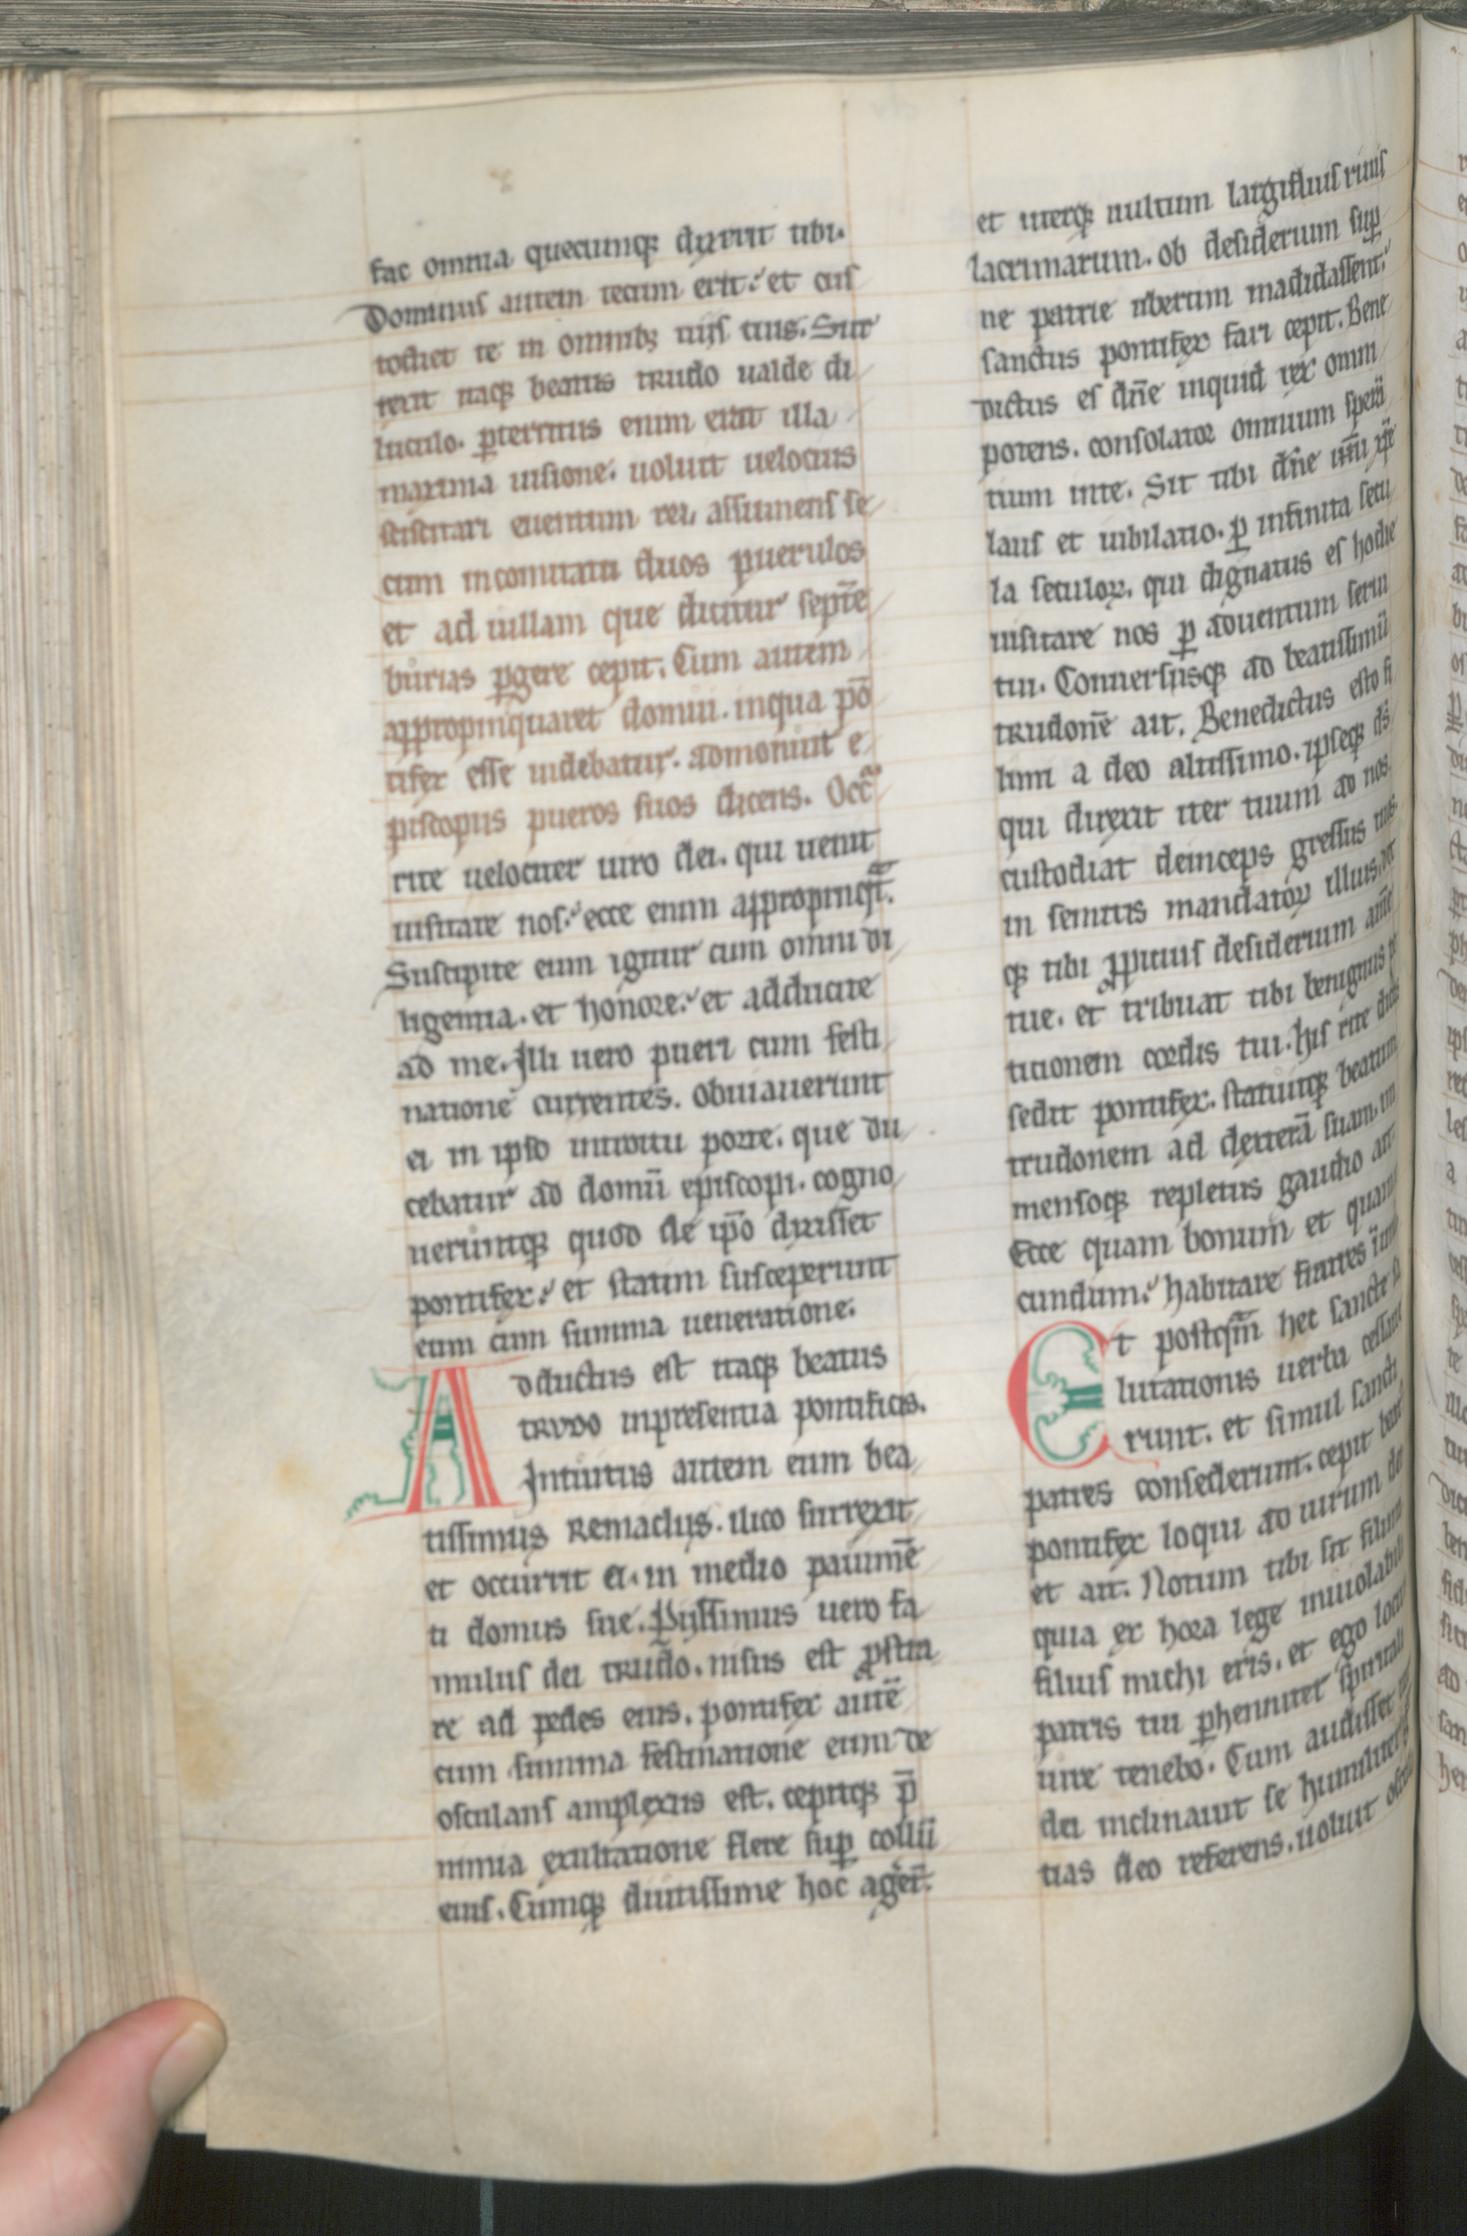 fac omnia quecumq; dixerit tibi.
Dominus autem tecum erit: et cus
todiet te in omnib; uiis tuis. Surr
rexit itaq; beatus trudo ualde di
luculo. p̱territus enim erat illa
maxima uisione. uoluit uelocius
sciscitari euentum rei, assumens se
cum in comitatu duos puerulos
et ad uillam que dicitur septē
burias ꝑgere cepit. Cum autem
appropinquaret domui. in qua pō
tifex esse uidebatur. admonuit e
piscopus pueros suos dicens. Occᵃ
rite uelociter uiro dei. qui uenit
uisitare nos: ecce enim appropinqᵃt.
Suscipite eum igitur cum omni di
ligentia. et honore: et adducite
ad me. Illi uero pueri cum festi
natione currentes. obuiauerunt
ei in ipso introitu porte. que du
cebatur ad domū episcopi. cogno
ueruntq; quod de ip̄o dixisset
pontifex: et statim susceperunt
eum cum summa ueneratione.
Adductus est itaq; beatus
trudo in presentia pontificis.
Intuitus autem eum bea
tissimus Remaclus. ilico surrexit
et occurrit ei in medio pauimē
ti domus sue. Piissimus uero fa
mulus dei trudo. nisus est ꝓstra
re ad pedes eius. pontifex autē
cum summa festinatione eum de
osculans amplexus est. cepitq; p̄
nimia exultatione flere suꝑ collū
eius. Cumq; diutissime hoc ager̄t.
et uterq; uultum largifluis riuis
lacrimarum. ob desiderium suꝑ
ne patrie ubertim madidassent:
sanctus pontifex fari cepit. Bene
dictus es dn̄e inquid rex omni
potens. consolator omnium sperā
tium in te. Sit tibi dn̄e ihū xp̄e
laus et iubilatio. ꝑ infinita secu
la seculoꝝ. qui dignatus es hodie
uisitare nos ꝑ aduentum serui
tui. Conuersusq; ad beatissimū
trudonē ait. Benedictus esto fi
limi a deo altissimo. ipseq; ds̄
qui direxit iter tuum ad nos.
custodiat deinceps gressus tuos
in semitis mandatoꝝ illius.
q; tibi ꝓpitius desiderium anīe
tue. et tribuat tibi benignus pe
titionem cordis tui. His rite dictis
sedit pontifex. statuitq; beatum
trudonem ad dexterā suam. in
mensoq; repletus gaudio ait.
Ecce quam bonum et quam
cundum: habitare fratres ī unū
Et postqᵃm hec sancte sa
lutationis uerba cessaue
runt. et simul sancti
patres consederunt. cepit beat
pontifex loqui ad uirum dei
et ait. Notum tibi sit filimi
quia ex hora lege inuiolabili
filius michi eris. et ego locum
patris tui ꝑhenniter spiritali
iure tenebo. Cum audisset uir
dei inclinauit se humiliter
tias deo referens. uoluit oscu